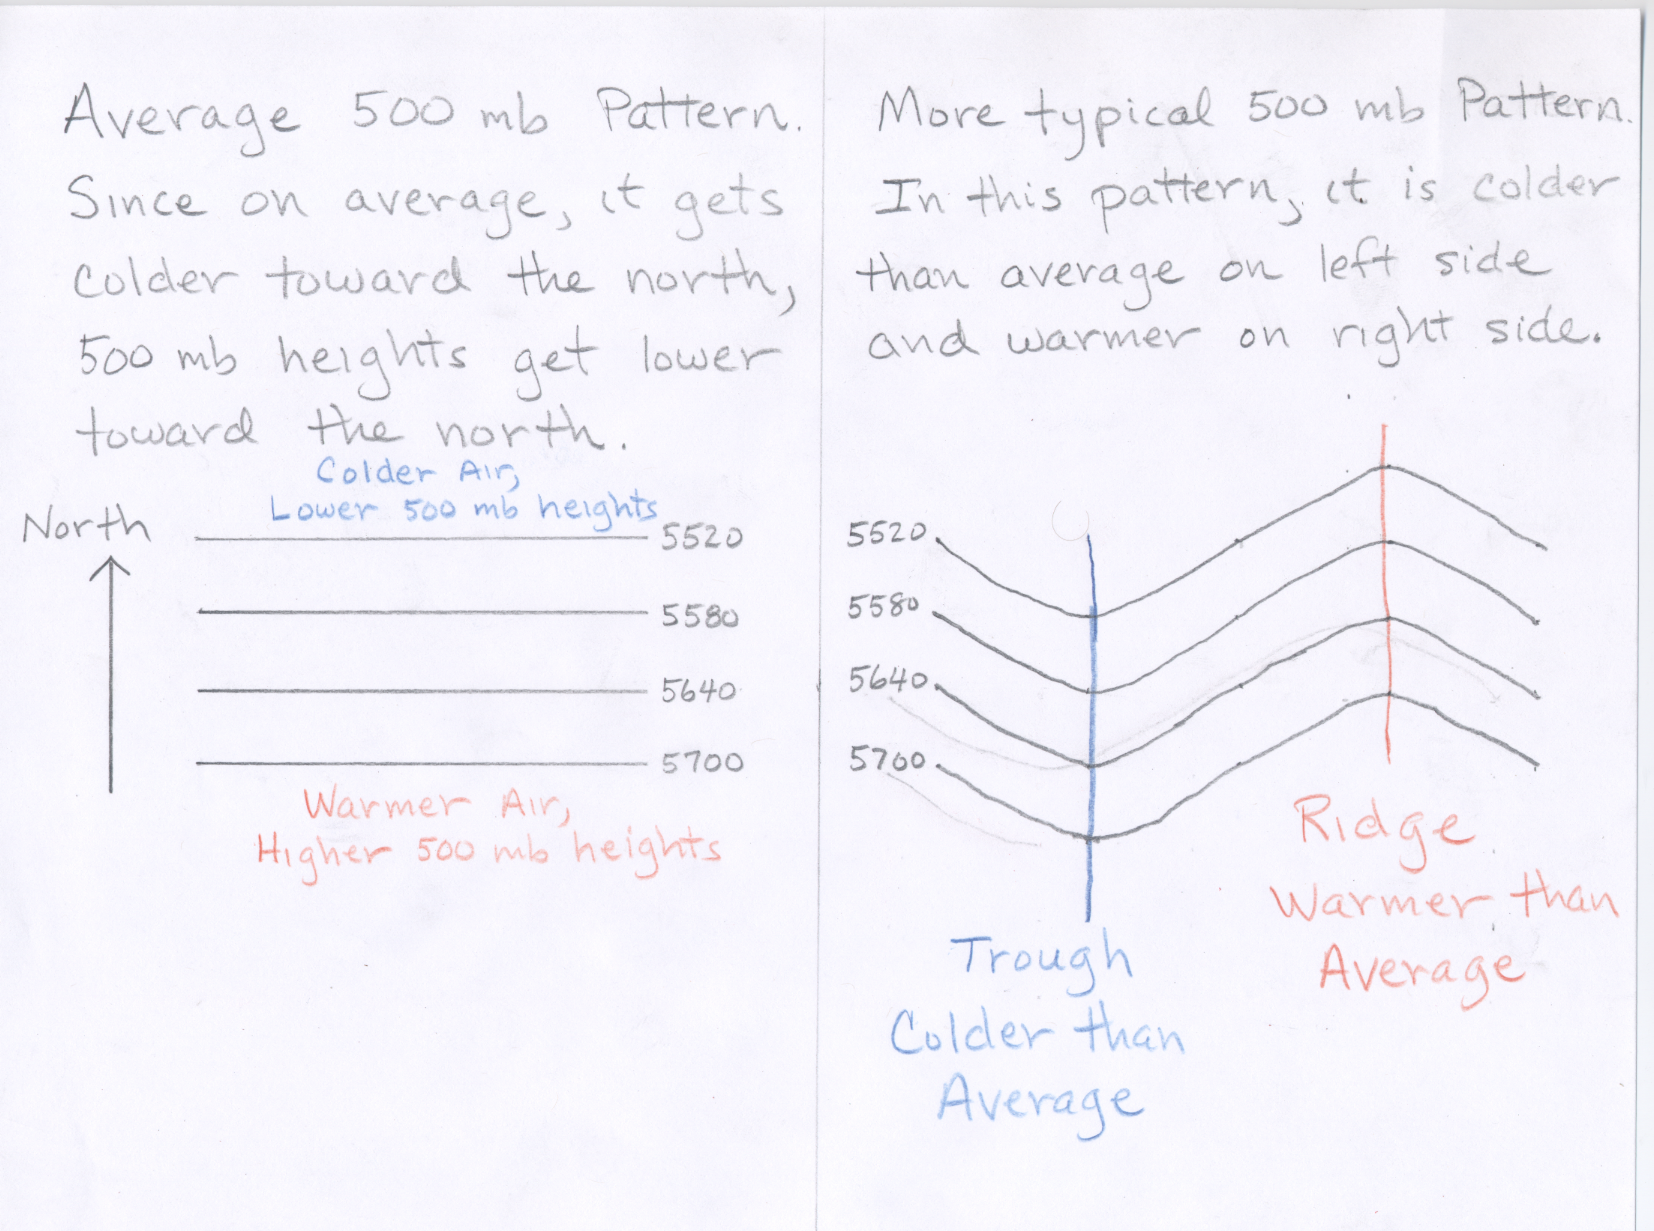 Average 500 mb Pattern.
Since on average, it gets
colder toward the north,
500 mb heights get lower
toward the north.
Colder Air,
Lower 500 mb heights
North
5520
5580
5640
5700
Warmer Air,
Higher 500 mb heights
More typical 500 mb Pattern.
In this pattern, it is colder
than average on left side
and warmer on right side.
5520
5580
5640
5700
Ridge
Warmer than
Average
Trough
Colder than
Average